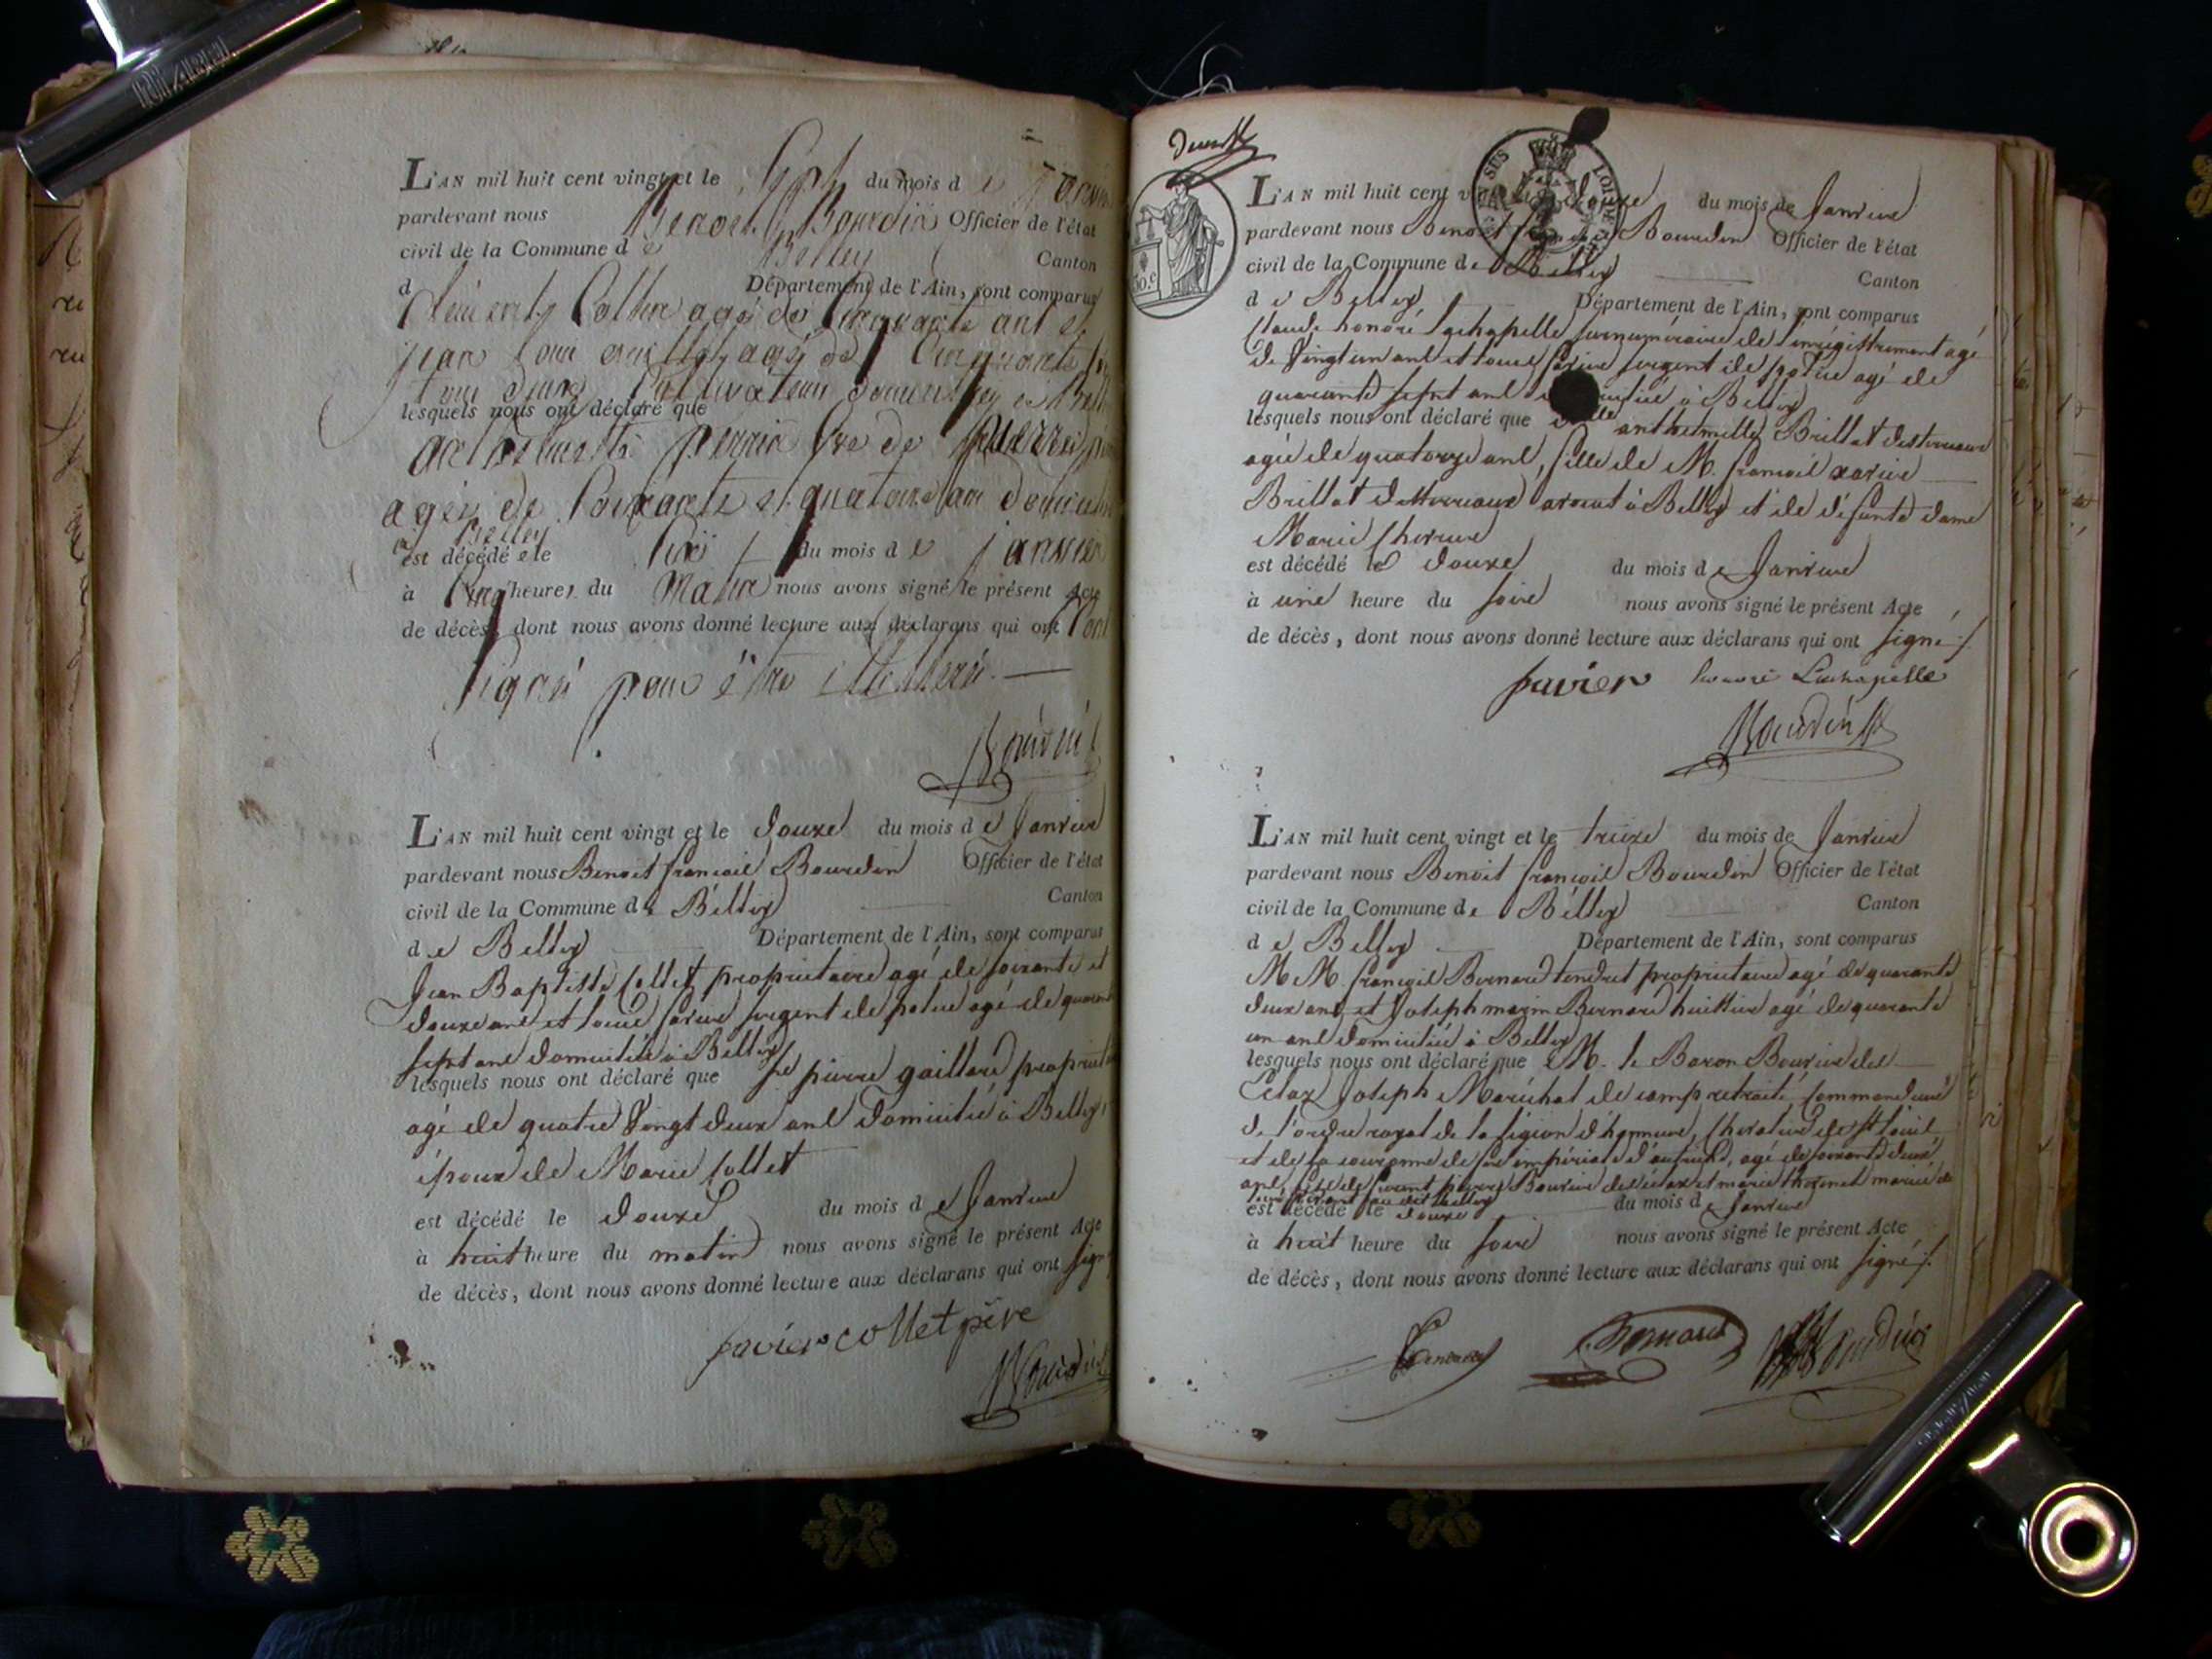 L'AN mil huit cent vingt et le Sept du mois de
pardevant nous Benoit f Bourdin Officier de l'état
civil de la Commune de Belley Canton
d Département de l'Ain, sont comparus
agé de Cinquante ans et
jean Louis agé de Cinquante
tous deux Cultivateurs
lesquels nous ont déclaré que
perrin de
agée de Soixante et quatorze an
Belley
est décédé le Six du mois de janvier
à Cinq heures du Matin nous avons signé le présent Acte
de décès, dont nous avons donné lecture aux déclarans qui ont
signé pour être
Bourdin
L'AN mil huit cent vingt et le douze du mois de Janvier
pardevant nous Benoit françois Bourdin Officier de l'état
civil de la Commune de Belley Canton
de Belley Département de l'Ain, sont comparus
Jean Baptiste Collet propriétaire agé de soixante et
douze ans et Louis favier sergent de police agé de quarante
sept ans domiciliés à Belley
lesquels nous ont déclaré que pierre gaillard
agé de quatre Vingt deux ans domicilié à Belley
époux de Marie Collet
est décédé le douze du mois de Janvier
à huit heure du matin nous avons signé le présent Acte
de décès, dont nous avons donné lecture aux déclarans qui ont signé
favier collet père
Bourdin
50.c
L'AN mil huit cent douze du mois de Janvier
pardevant nous Benoit Bourdin Officier de l'état
civil de la Commune de Belley Canton
de Belley Département de l'Ain, sont comparus
Claude honoré Lachapelle surnuméraire de l'enrégistrement agé
de Vingt un ans et Louis favier sergent de police agé de
quarante sept ans à Belley
lesquels nous ont déclaré que Brillat
agée de quatorze ans, fille de M. françois xavier
Brillat avocat à Belley et de défunte dame
Marie
est décédé le douze du mois de Janvier
à une heure du soir nous avons signé le présent Acte
de décès, dont nous avons donné lecture aux déclarans qui ont signé
favier honoré Lachapelle
Bourdin
L'AN mil huit cent vingt et le treize du mois de Janvier
pardevant nous Benoit françois Bourdin Officier de l'état
civil de la Commune de Belley Canton
de Belley Département de l'Ain, sont comparus
MM. françois Bernard tendret propriétaire agé de quarante
deux ans et Joseph marin Bernard huissier agé de quarante
un ans domiciliés à Belley
lesquels nous ont déclaré que M. le Baron Bouvier des
Eclaz Joseph Maréchal de camp retraité Commandeur
de l'ordre royal de la légion d'honneur, Chevalier de St Louis
et de la couronne de fer impériale d'autriche, agé de soixante deux
ans, fils de pierre Bouvier des éclaz et marie
est décédé le douze du mois de Janvier
à huit heure du soir nous avons signé le présent Acte
de décès, dont nous avons donné lecture aux déclarans qui ont signé
Bernard Bourdin